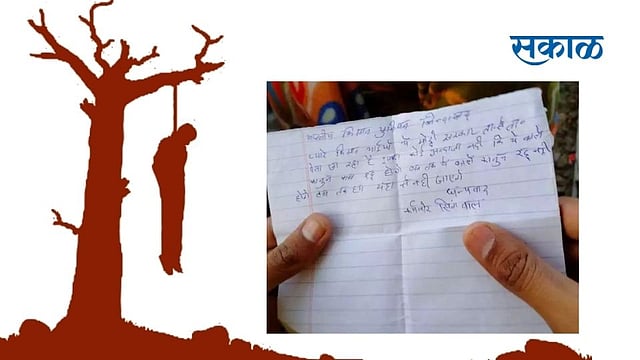 सकाळ
भारतीय किसान यूनियन जिन्दाबाद
प्यारे किसान भाईयो ये मोदी सरकार
देता जा रहा है इसका कोई अन्दाजा नही कि ये काले
कानून कब रद्द होंगे जब तक ये काले कानून रद्द नही
होंगे तब तक हम यहां से नही जाएंगे
धन्यवाद
सिंगवाल